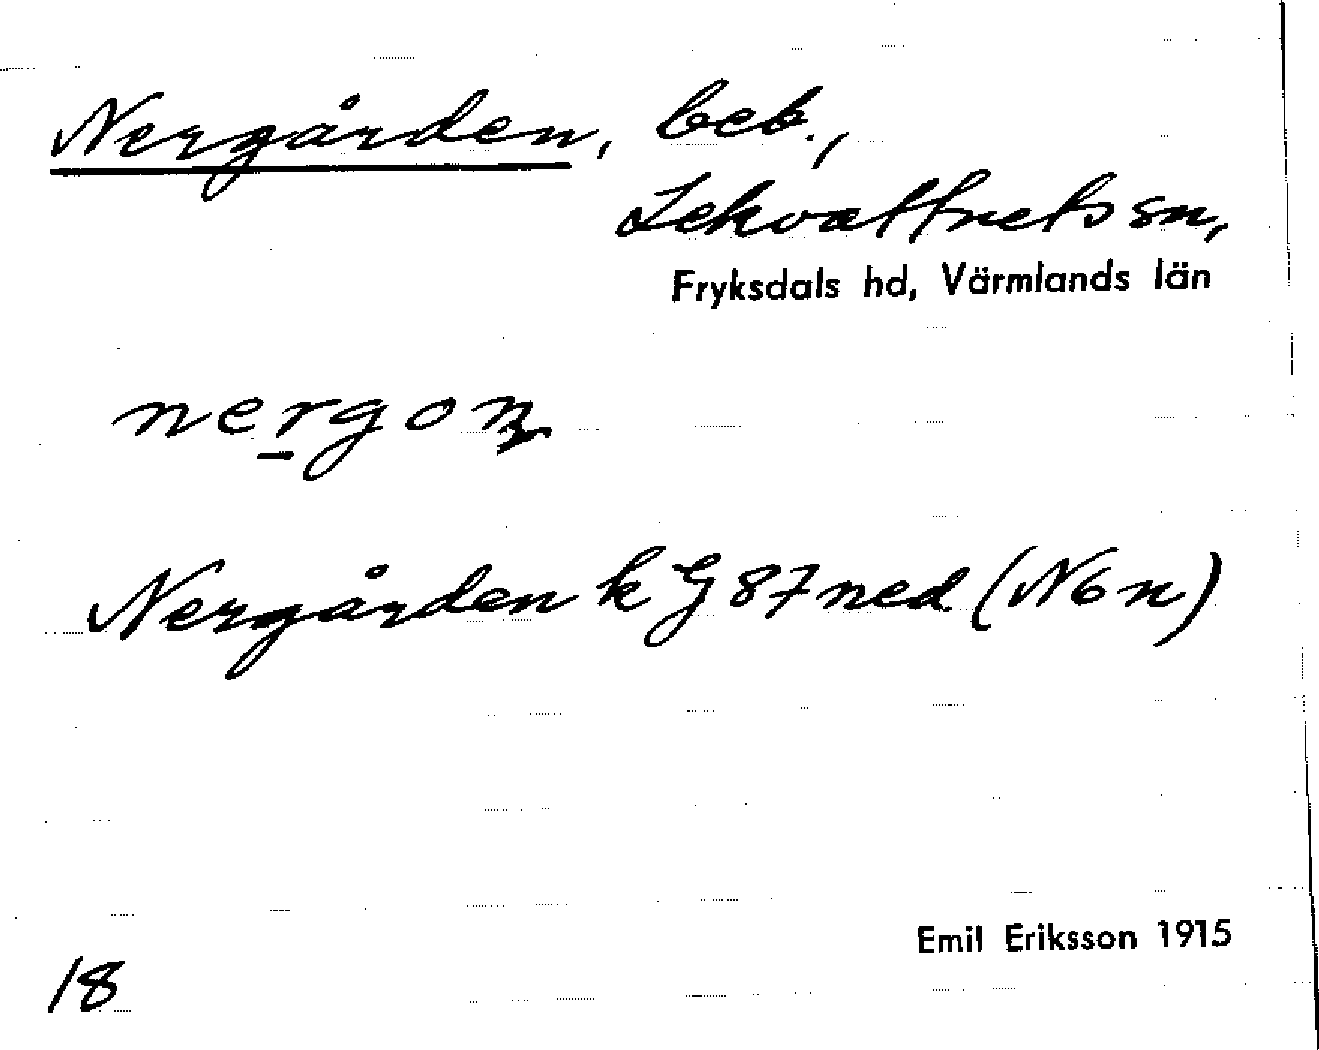 Nergården, beb.,
Lekvattnets sn,
Fryksdals hd, Värmlands län
nergon
Nergården k G 87 ned (N6n)
Emil Eriksson 1915
18